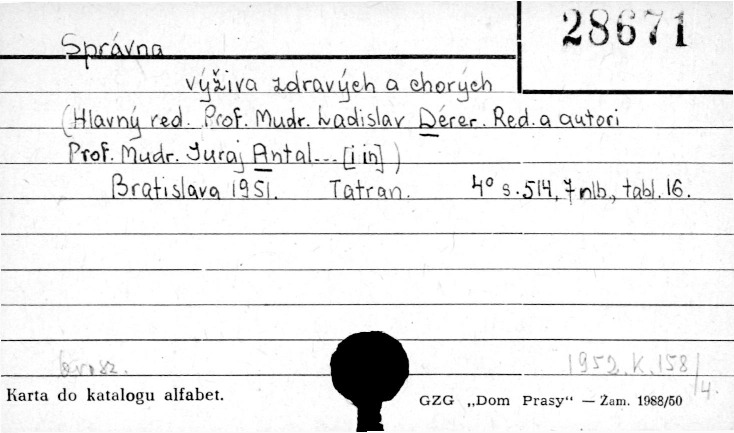 28671
Správna
výživa zdravých a chorých
(Hlavný red. Prof. Mudr. Ladislav Dérer. Red. a autori
Prof. Mudr. Juraj Antal... [i in])
Bratislava 1951. Tatran. 4° s. 514, 7 nlb., tabl. 16.
brosz. 1952.K.158/4.
Karta do katalogu alfabet.
GZG „Dom Prasy“ — Zam. 1988/50